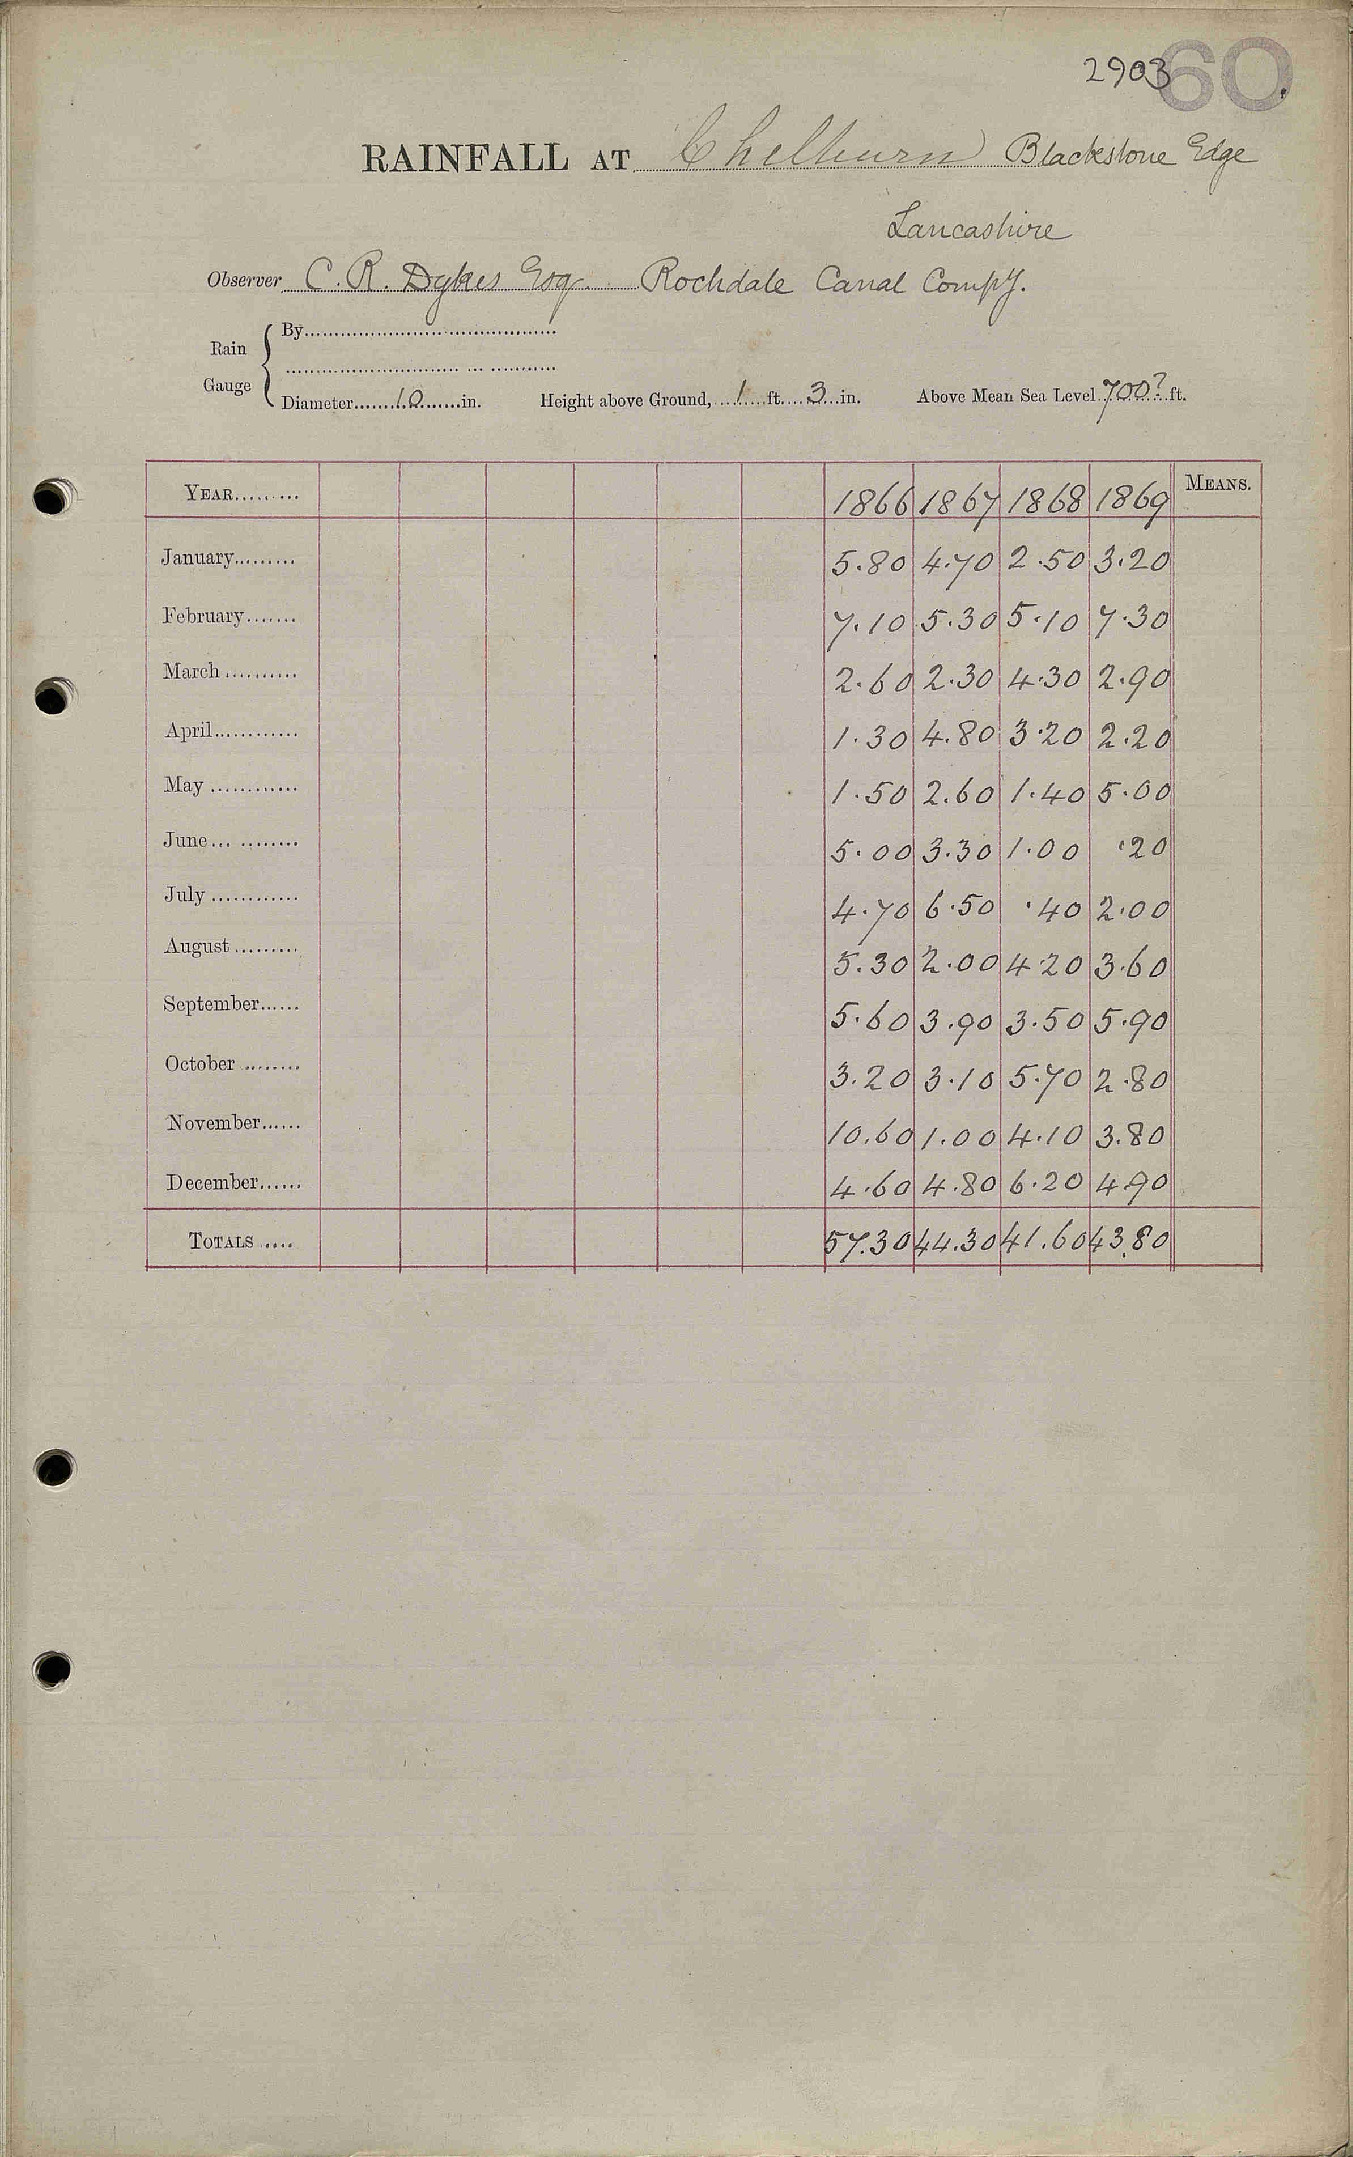 2903 60
RAINFALL AT Chelburn Blackstone Edge
Lancashire
Observer C. R. Dykes Esq. Rochdale Canal Compy.
Rain Gauge { By
Diameter 10 in. Height above Ground, 1 ft. 3 in. Above Mean Sea Level 700? ft.
YEAR 1866 1867 1868 1869 MEANS.
January 5.80 4.70 2.50 3.20
February 7.10 5.30 5.10 7.30
March 2.60 2.30 4.30 2.90
April 1.30 4.80 3.20 2.20
May 1.50 2.60 1.40 5.00
June 5.00 3.30 1.00 .20
July 4.70 6.50 .40 2.00
August 5.30 2.00 4.20 3.60
September 5.60 3.90 3.50 5.90
October 3.20 3.10 5.70 2.80
November 10.60 1.00 4.10 3.80
December 4.60 4.80 6.20 4.90
TOTALS 57.30 44.30 41.60 43.80